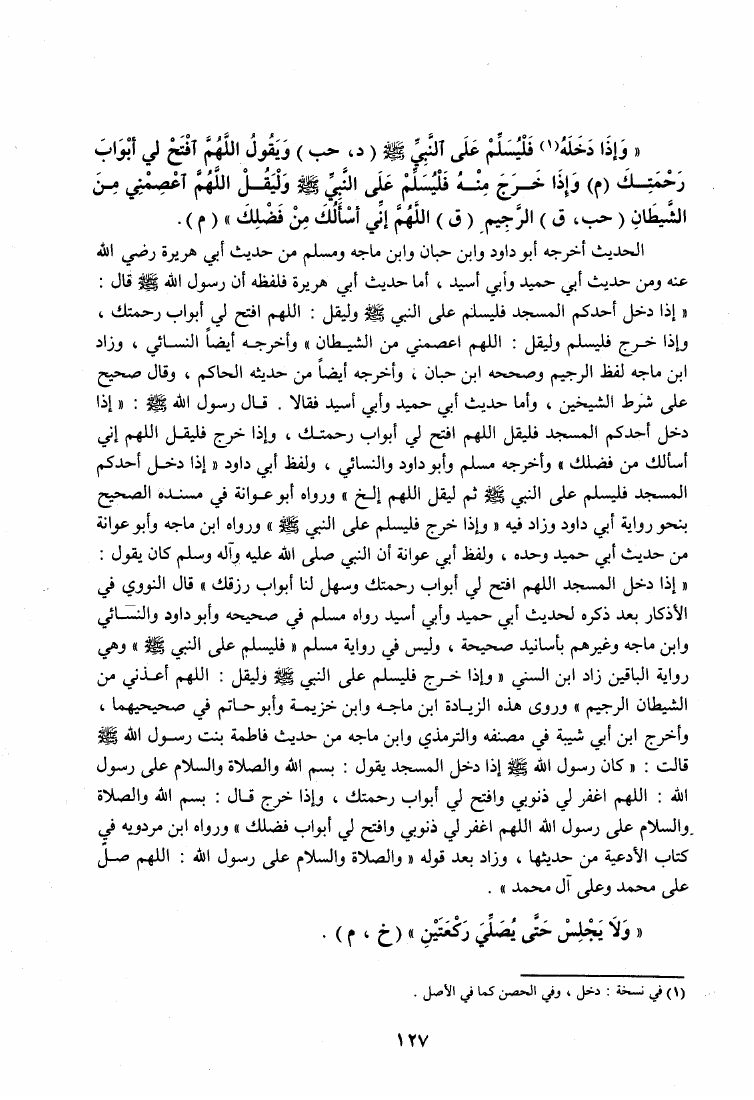 « وَإِذَا دَخَلَهُ(١) فَلْيُسَلِّمْ عَلَى ٱلنَّبِيِّ ﷺ (د، حب) وَيَقُولُ اللَّهُمَّ ٱفْتَحْ لي أَبْوَابَ
رَحْمَتِـكَ (م) وَإِذَا خَـرَجَ مِنْـهُ فَلْيُسَلِّمْ عَلَى النَّبِيِّ ﷺ وَلْيَقُـلْ اللَّهُمَّ ٱعْصِمْنِي مِـنَ
الشَّيطَانِ (حب، ق) الرَّجِيمِ (ق) اللَّهُمَّ إِنِّي أَسْأَلُكَ مِنْ فَضْلِكَ » (م).
الحديث أخرجه أبو داود وابن حبان وابن ماجه ومسلم من حديث أبي هريرة رضي الله
عنه ومن حديث أبي حميد وأبي أسيد ، أما حديث أبي هريرة فلفظه أن رسول الله ﷺ قال :
« إذا دخل أحدكم المسجد فليسلم على النبي ﷺ وليقل : اللهم افتح لي أبواب رحمتك ،
وإذا خـرج فليسلم وليقل : اللهم اعصمني من الشيـطان » وأخرجـه أيضاً النسـائي ، وزاد
ابن ماجه لفظ الرجيم وصححه ابن حبان ، وأخرجه أيضاً من حديثه الحاكم ، وقال صحيح
على شرط الشيخين ، وأما حديث أبي حميد وأبي أسيد فقالا . قـال رسول الله ﷺ : « إذا
دخل أحدكم المسجد فليقل اللهم افتح لي أبواب رحمتـك ، وإذا خرج فليقـل اللهم إني
أسألك من فضلك » وأخرجه مسلم وأبو داود والنسائي ، ولفظ أبي داود « إذا دخـل أحدكم
المسجد فليسلم على النبي ﷺ ثم ليقل اللهم إلـخ » ورواه أبو عـوانة في مسنـده الصحيح
بنحو رواية أبي داود وزاد فيه « وإذا خرج فليسلم على النبي ﷺ » ورواه ابن ماجه وأبو عوانة
من حديث أبي حميد وحده ، ولفظ أبي عوانة أن النبي صلى الله عليه وآله وسلم كان يقول :
« إذا دخل المسجد اللهم افتح لي أبواب رحمتك وسهل لنا أبواب رزقك » قال النووي في
الأذكار بعد ذكره لحديث أبي حميد وأبي أسيد رواه مسلم في صحيحه وأبو داود والنسـائي
وابن ماجه وغيرهم بأسانيد صحيحة ، وليس في رواية مسلم « فليسلم على النبي ﷺ » وهي
رواية الباقين زاد ابن السني « وإذا خـرج فليسلم على النبي ﷺ وليقل : اللهم أعـذني من
الشيطان الرجيم » وروى هذه الزيـادة ابن ماجـه وابن خزيمـة وأبو حـاتم في صحيحيهما ،
وأخرج ابن أبي شيبة في مصنفه والترمذي وابن ماجه من حديث فاطمة بنت رسـول الله ﷺ
قالت : « كان رسول الله ﷺ إذا دخل المسجد يقول : بسم الله والصلاة والسلام على رسول
الله : اللهم اغفر لي ذنوبي وافتح لي أبواب رحمتك ، وإذا خرج قـال : بسم الله والصلاة
والسلام على رسول الله اللهم اغفر لي ذنوبي وافتح لي أبواب فضلك » ورواه ابن مردويه في
كتاب الأدعية من حديثها ، وزاد بعد قوله « والصلاة والسلام على رسول الله : اللهم صـلّ
على محمد وعلى آل محمد » .
« وَلَا يَجْلِسْ حَتَّى يُصَلِّيَ رَكْعَتَيْنِ » (خ ، م) .
(١) في نسخة : دخل ، وفي الحصن كما في الأصل .
١٢٧